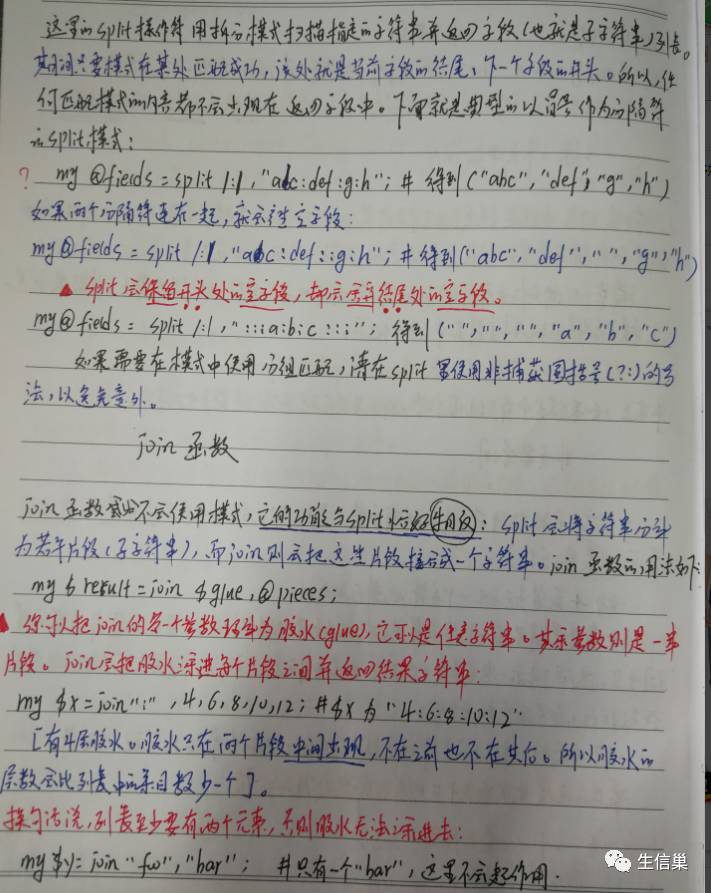 这里的split操作符用拆分模式扫描指定的字符串并返回字段(也就是子字符串)列表。
期间只要模式在某处匹配成功,该处就是当前字段的结尾、下一个字段的开头。所以,任
何匹配模式的内容都不会出现在返回字段中。下面就是典型的以冒号作为分隔符
的split模式:
? my @fields = split /:/, "abc:def:g:h"; # 得到("abc","def","g","h")
如果两个分隔符连在一起,就会产生空字段:
my @fields = split /:/, "abc:def::g:h"; # 得到("abc","def","","g","h")
▲ split会保留开头处的空字段,却会舍弃结尾处的空字段。
my @fields = split /:/, ":::a:b:c:::"; 得到("","","","a","b","c")
如果需要在模式中使用分组匹配,请在split里使用非捕获圆括号(?:)的写
法,以避免意外。
join 函数
join 函数不会使用模式,它的功能与split恰好相反: split会将字符串分割
为若干片段(子字符串),而join则会把这些片段接合成一个字符串。join 函数的用法如下:
my $result = join $glue, @pieces;
▲ 你可以把join的第一个参数理解为胶水(glue),它可以是任意字符串。其余参数则是一串
片段。join会把胶水涂进每个片段之间并返回结果字符串:
my $x = join ":", 4, 6, 8, 10, 12; # $x 为 "4:6:8:10:12"
[有4层胶水。胶水只在两个片段中间出现,不在之前也不在其后。所以胶水的
层数会比列表中的条目数少一个]。
换句话说,列表至少要有两个元素,否则胶水无法涂进去:
my $y = join "foo", "bar"; # 只有一个"bar",这里不会起作用.
生信巢